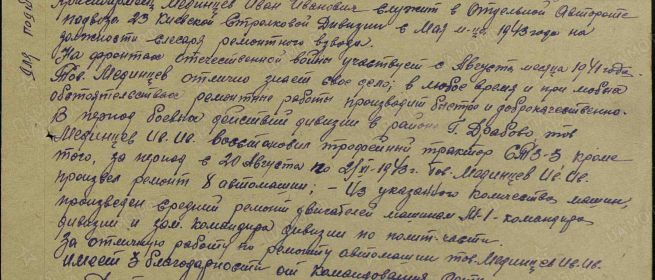 Красноармеец Мединцев Иван Иванович служит в Отдельной Автороте
подвоза 23 Киевской Стрелковой Дивизии с Мая м-ца 1943 года на
должности слесаря ремонтного взвода.
На фронтах отечественной войны участвует с Августа месяца 1941 года.
Тов. Мединцев отлично знает свое дело, в любое время и при любых
обстоятельствах ремонтные работы производит быстро и доброкачественно.
В период боевых действий дивизии в районе г. Драбово тов
Мединцев Ив. Ив. восстановил трофейный трактор СТЗ-3 кроме
того, за период с 20 Августа по 2/XI-1943г. Тов. Мединцев Ив. Ив.
произвел ремонт 8 автомашин; - Из указанного количества машин,
произведен средний ремонт двигателей машинам М-1 командира
дивизии и зам. командира дивизии по полит-части.
За отличную работу по ремонту автомашин тов. Мединцев Ив. Ив.
имеет 3 благодарности от командования
Для подв